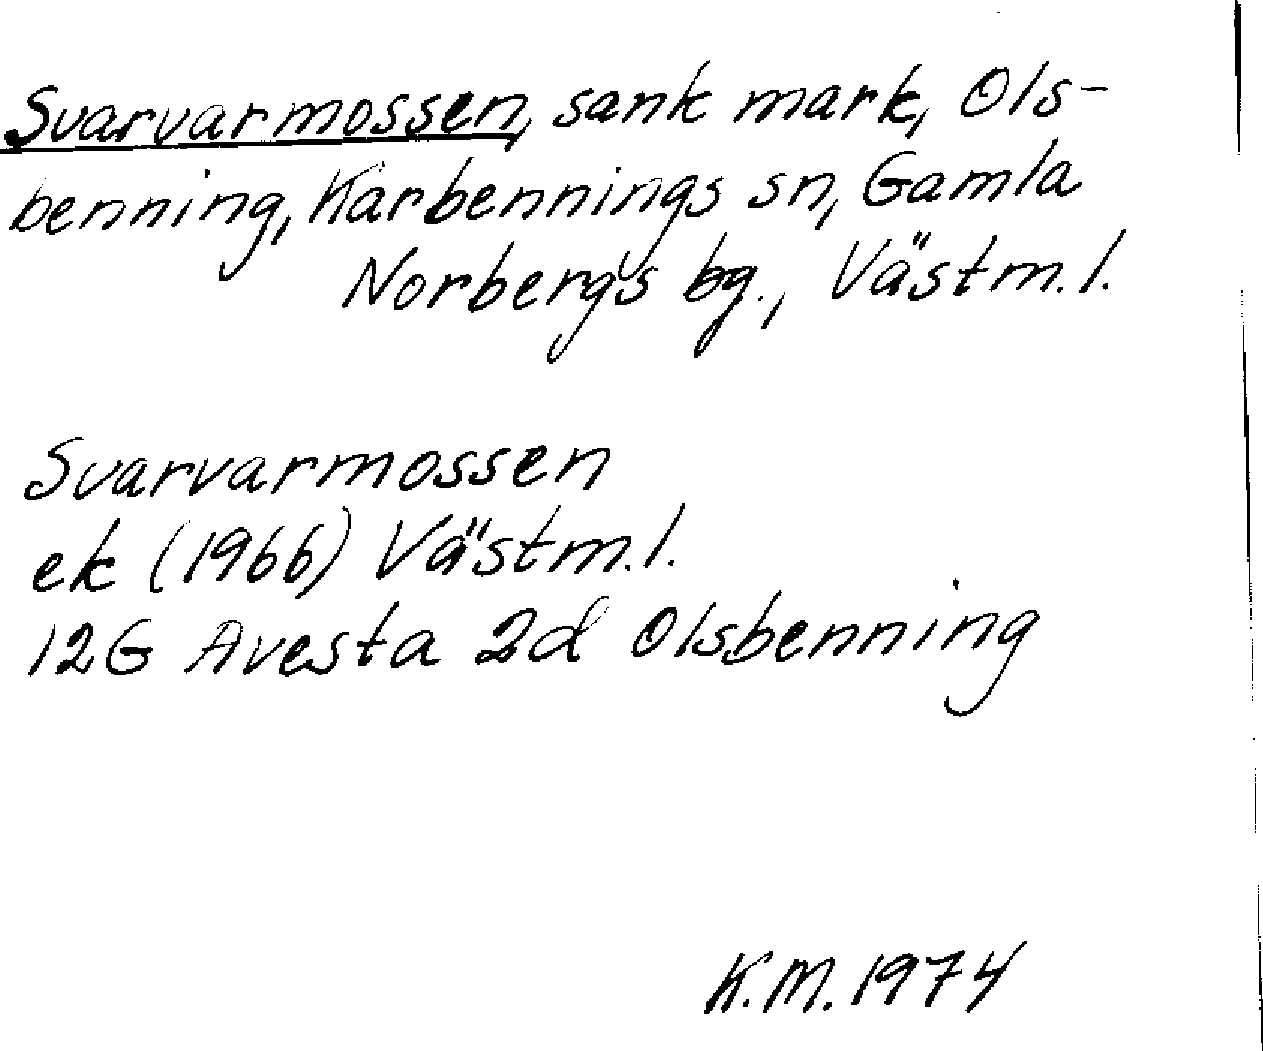 Svarvarmossen, sank mark, Ols-
benning, Karbennings sn, Gamla
Norbergs bg., Västm.l.
Svarvarmossen
ek (1966) Västm.l.
12G Avesta 2d Olsbenning
K.M. 1974